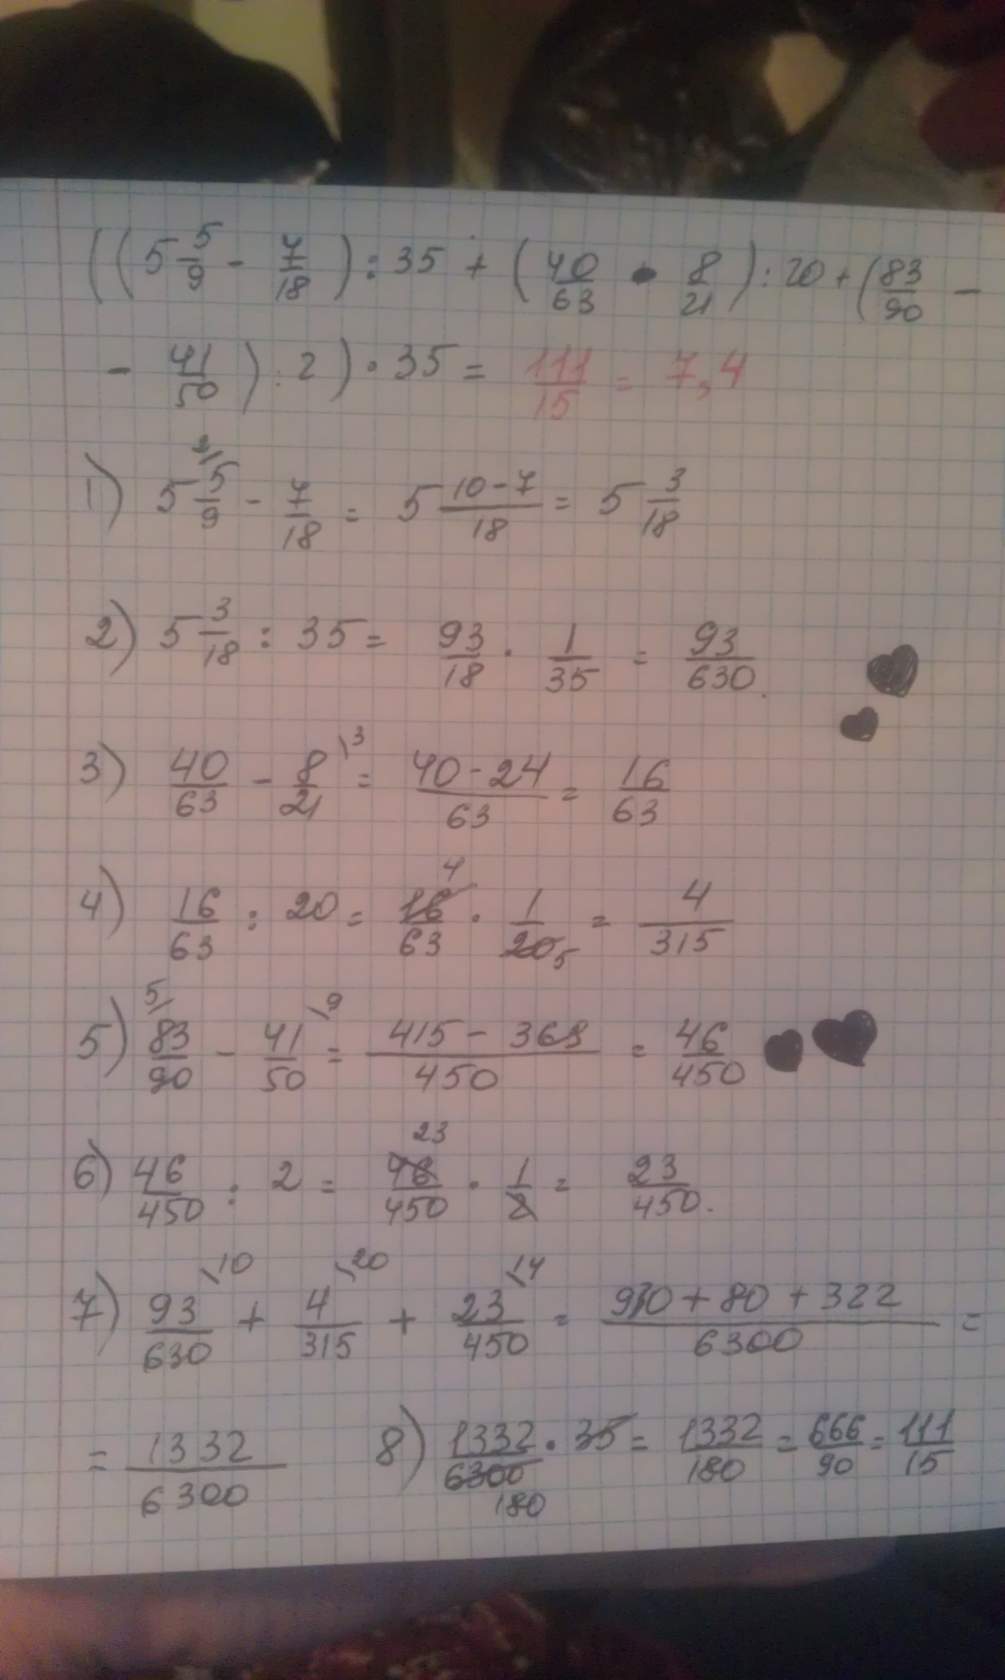 ((5 5/9 - 7/18) : 35 + (40/63 • 8/21) : 20 + (83/90 -
- 41/50) : 2) · 35 = 111/15 = 7,4
1) 5 5/9 - 7/18 = 5 (10-7)/18 = 5 3/18
2) 5 3/18 : 35 = 93/18 · 1/35 = 93/630.
3) 40/63 - 8/21 \3 = (40-24)/63 = 16/63
4) 16/63 : 20 = 16/63 4 · 1/20 5 = 4/315
5) 5/ 83/90 - 41/50 \9 = (415 - 369)/450 = 46/450
6) 46/450 : 2 = 46/450 23 · 1/2 = 23/450.
7) 93/630 \10 + 4/315 \20 + 23/450 \14 = (930 + 80 + 322)/6300 =
= 1332/6300 8) 1332/6300 180 · 35 = 1332/180 = 666/90 = 111/15